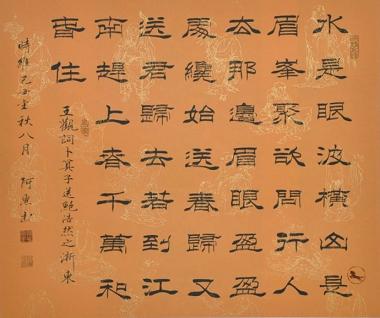 水是眼波橫山是
眉峯聚欲問行人
去那邊眉眼盈盈
處纔始送春歸又
送君歸去若到江
南趕上春千萬和
春住
王觀詞卜算子送鮑浩然之浙東
時維己丑金秋八月